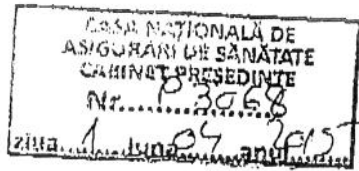 CASA NAŢIONALĂ DE
ASIGURĂRI DE SĂNĂTATE
CABINET PREŞEDINTE
Nr. P 3068
ziua 1 luna 04 anul 2015